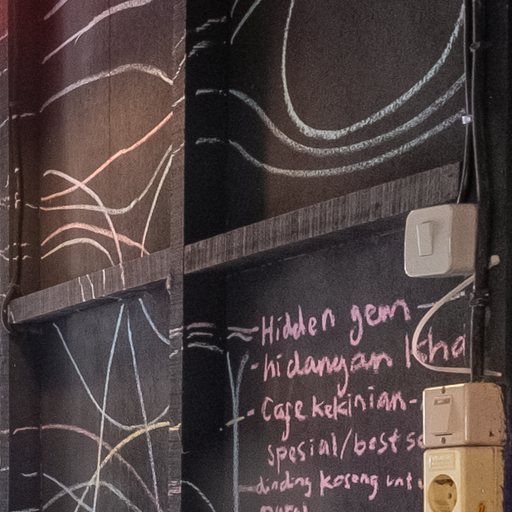 -Hidden gem -
-hidangan kha
-Cafe kekinian-
spesial/best se
-dinding kosong unt
mural